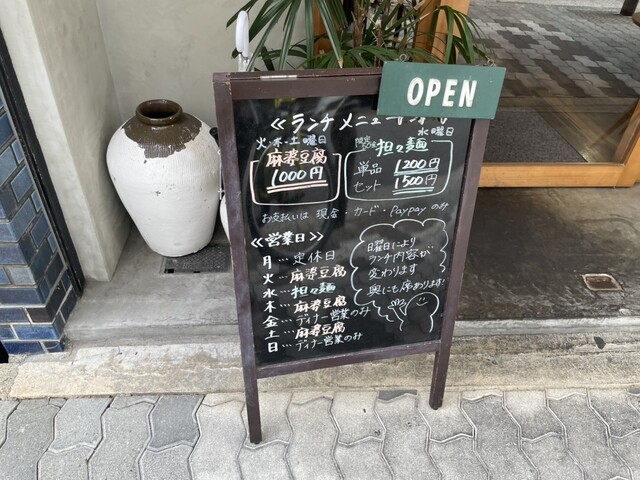 OPEN
≪ランチメニュー
火・木・土曜日
麻婆豆腐
1000円
水曜日
担々麺
単品 1200円
セット 1500円
お支払いは 現金・カード・PayPay のみ
≪営業日≫
月…定休日
火…麻婆豆腐
水…担々麺
木…麻婆豆腐
金…ディナー営業のみ
土…麻婆豆腐
日…ディナー営業のみ
日曜日により
ランチ内容が
変わります
奥にも席あります!